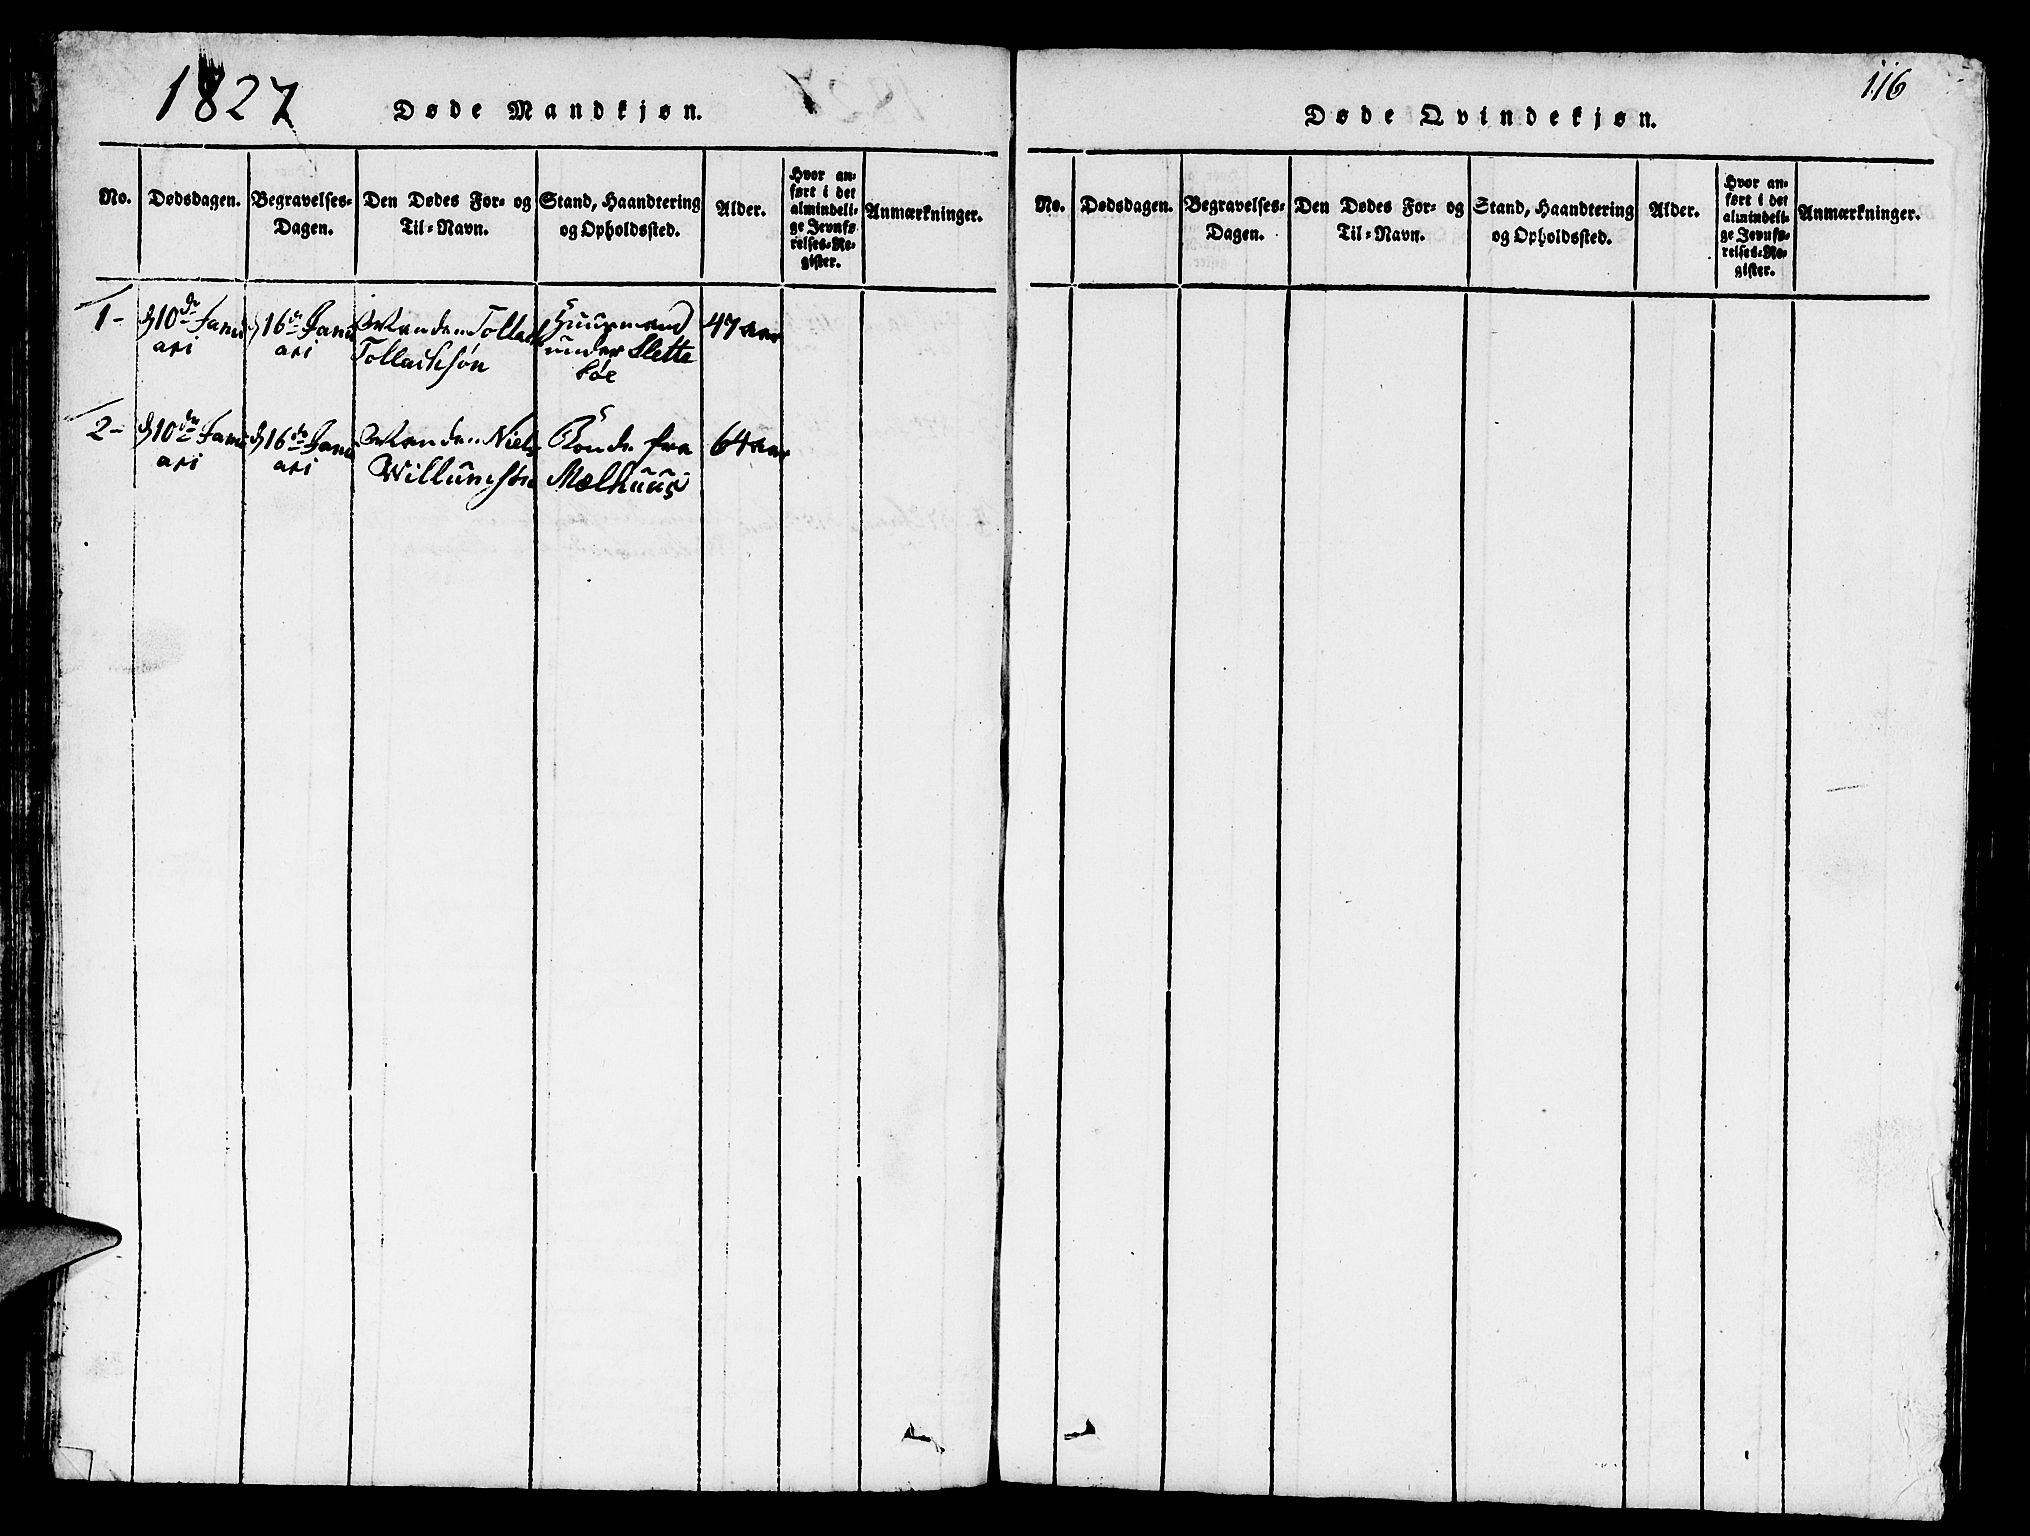 1827
Døde Mandkjøn.
No.
Dødsdagen.
Begravelses-
Dagen.
Den Dødes For- og
Til-Navn.
Stand, Haandtering
og Opholdssted.
Alder.
Hvor an-
ført i det
almindeli-
ge Jevnfø-
relses-Re-
gister.
Anmærkninger.
1-
10de Janu
ari
16de Janu
ari
Tollack
Tollacksøn
Huusmand
under Slette
bøe
47 aar
2-
10de Janu
ari
16de Janu
ari
Niels
Willumsøn
Bonde fra
Mælhuus
64 aar
116
Døde Qvindekjøn.
No.
Dødsdagen.
Begravelses-
Dagen.
Den Dødes For- og
Til-Navn.
Stand, Haandtering
og Opholdssted.
Alder.
Hvor an-
ført i det
almindeli-
ge Jevnfø-
relses-Re-
gister.
Anmærkninger.